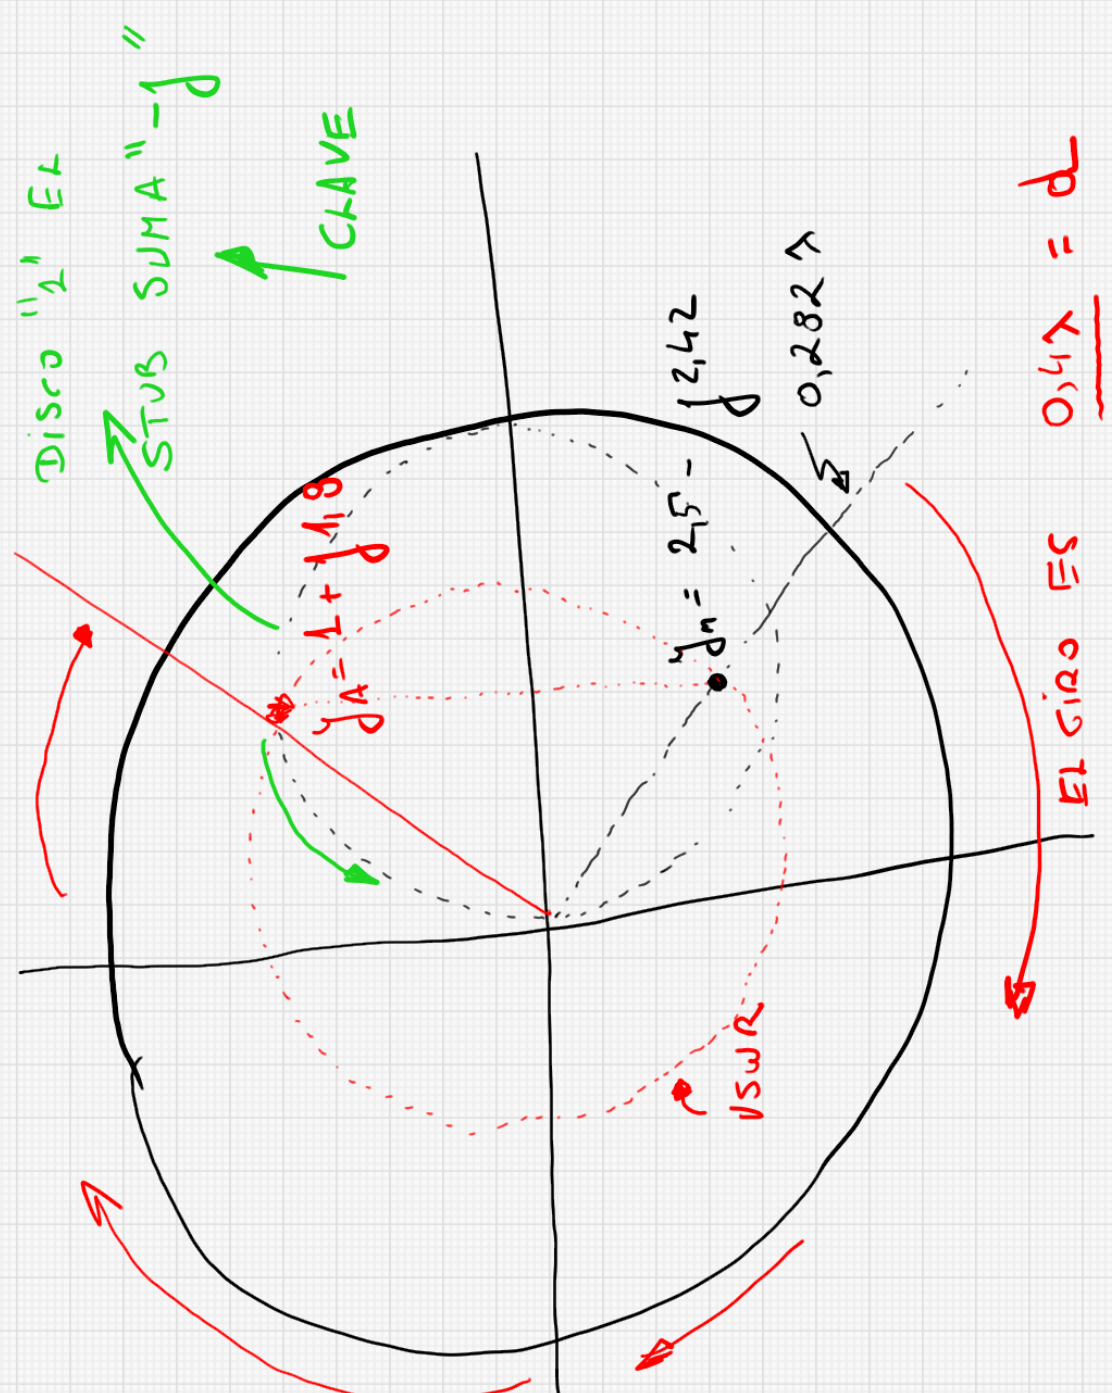 DISCO "1" EL
STUB SUMA "-j"
CLAVE
yA = 1 + j 1,9
yn = 2,5 - j 2,42
0,282 λ
EL GIRO ES
0,4λ = d
VSWR